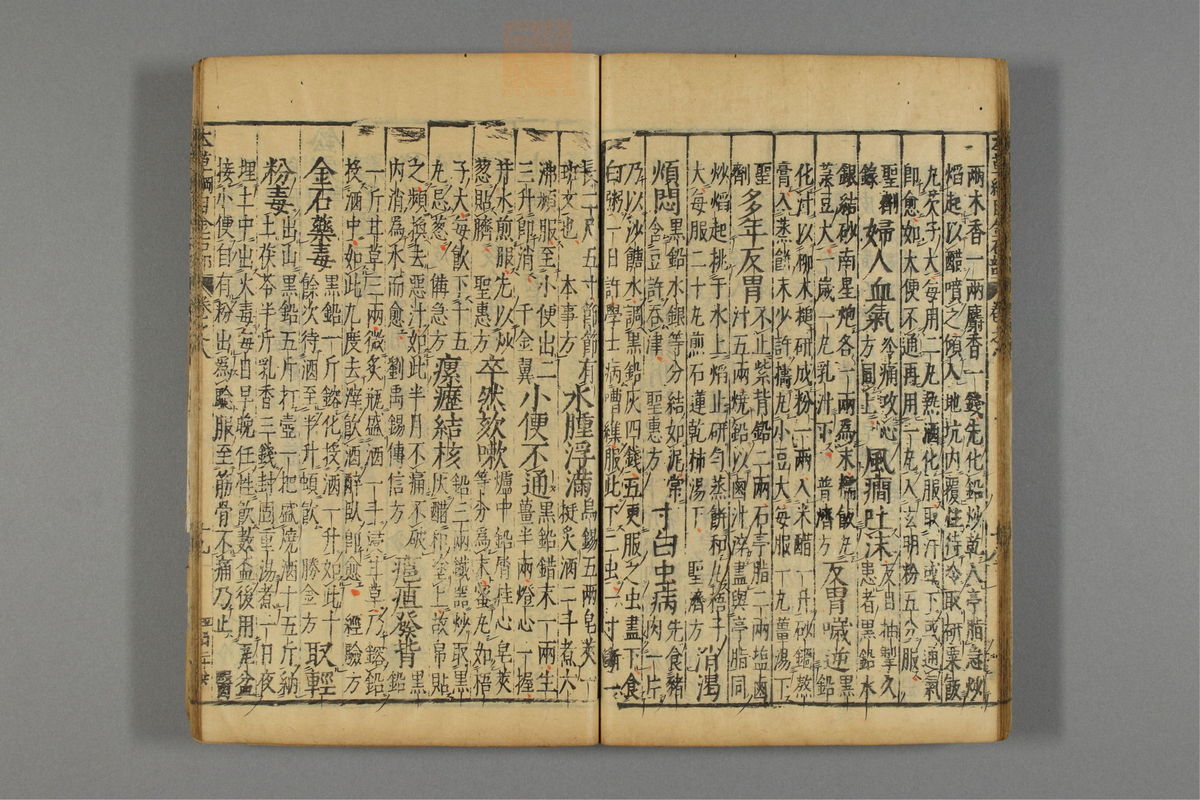 兩木香一兩麝香一錢先化鉛炒乾入亭脂急炒
焰起以醋噴之傾入地坑內覆住待冷取研粟飯
丸芡子大每用二丸熱酒化服取汗或下或通氣
即愈如大便不通再用一丸入玄明粉五分服
聖劑婦人血氣冷痛攻心方同上風癎吐沫反目抽掣久
患者黑鉛水
銀結砂南星炮各一兩爲末糯飯丸
菉豆大一歲一丸乳汁下普濟方反胃噦逆黑鉛
化汁以柳木槌研成粉一兩入米醋一升砂鍋熬
膏入蒸餅末少許擣丸小豆大每服一丸薑湯下
聖劑多年反胃不止紫背鉛二兩石亭脂二兩塩鹵
汁五兩燒鉛以鹵汁淬盡與亭脂同
炒焰起挑于水上焰止研勻蒸餅和丸梧子
大每服二十丸煎石蓮乾柿湯下聖濟方消渴
煩悶黑鉛水銀等分結如泥常含豆許吞津聖惠方寸白虫病先食豬肉一片
乃以沙糖水調黑鉛灰四錢五更服之虫盡下食
白粥一日許學士病嘈雜服此下二虫一寸斷一
長二尺五寸節節有斑文也本事方水腫浮滿烏錫五兩皂莢一挺炙酒二斗煮六
沸頻服至小便出二
三升即消千金翼小便不通黑鉛錯末一兩生薑半兩燈心一握
井水煎服先以炒
葱貼臍聖惠方卒然欬嗽爐中鉛屑桂心皂莢等分爲末蜜丸如梧
子大每飲下十五
丸忌葱備急方瘰癧結核鉛三兩鐵器炒取黑灰醋和塗上故帛貼
之頻換去惡汁如此半月不痛不破
內消爲水而愈劉禹錫傳信方癰疽發背黑鉛
一斤甘草三兩微炙瓶盛酒一斗浸甘草乃鎔鉛
投酒中如此九度去滓飲酒醉臥即愈經驗方
金石藥毒黑鉛一斤鎔化投酒一升如此十餘次待酒至半升頓飲勝金方取輕
粉毒出山黑鉛五斤打壺一把盛燒酒十五斤納土茯苓半斤乳香三錢封固重湯煮一日夜
埋土中出火毒每日早晚任性飲數盃後用瓦盆
接小便自有粉出爲驗服至筋骨不痛乃止